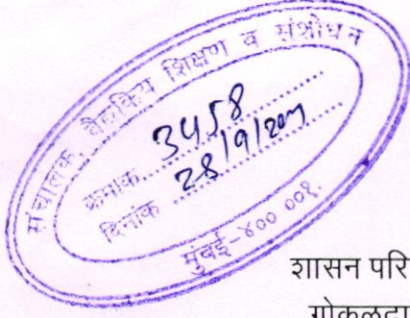 संचालक, वैद्यकिय शिक्षण व संशोधन
क्रमांक 3458
दिनांक
मुंबई-४०० ००१.
शासन परि
गोकुळदा